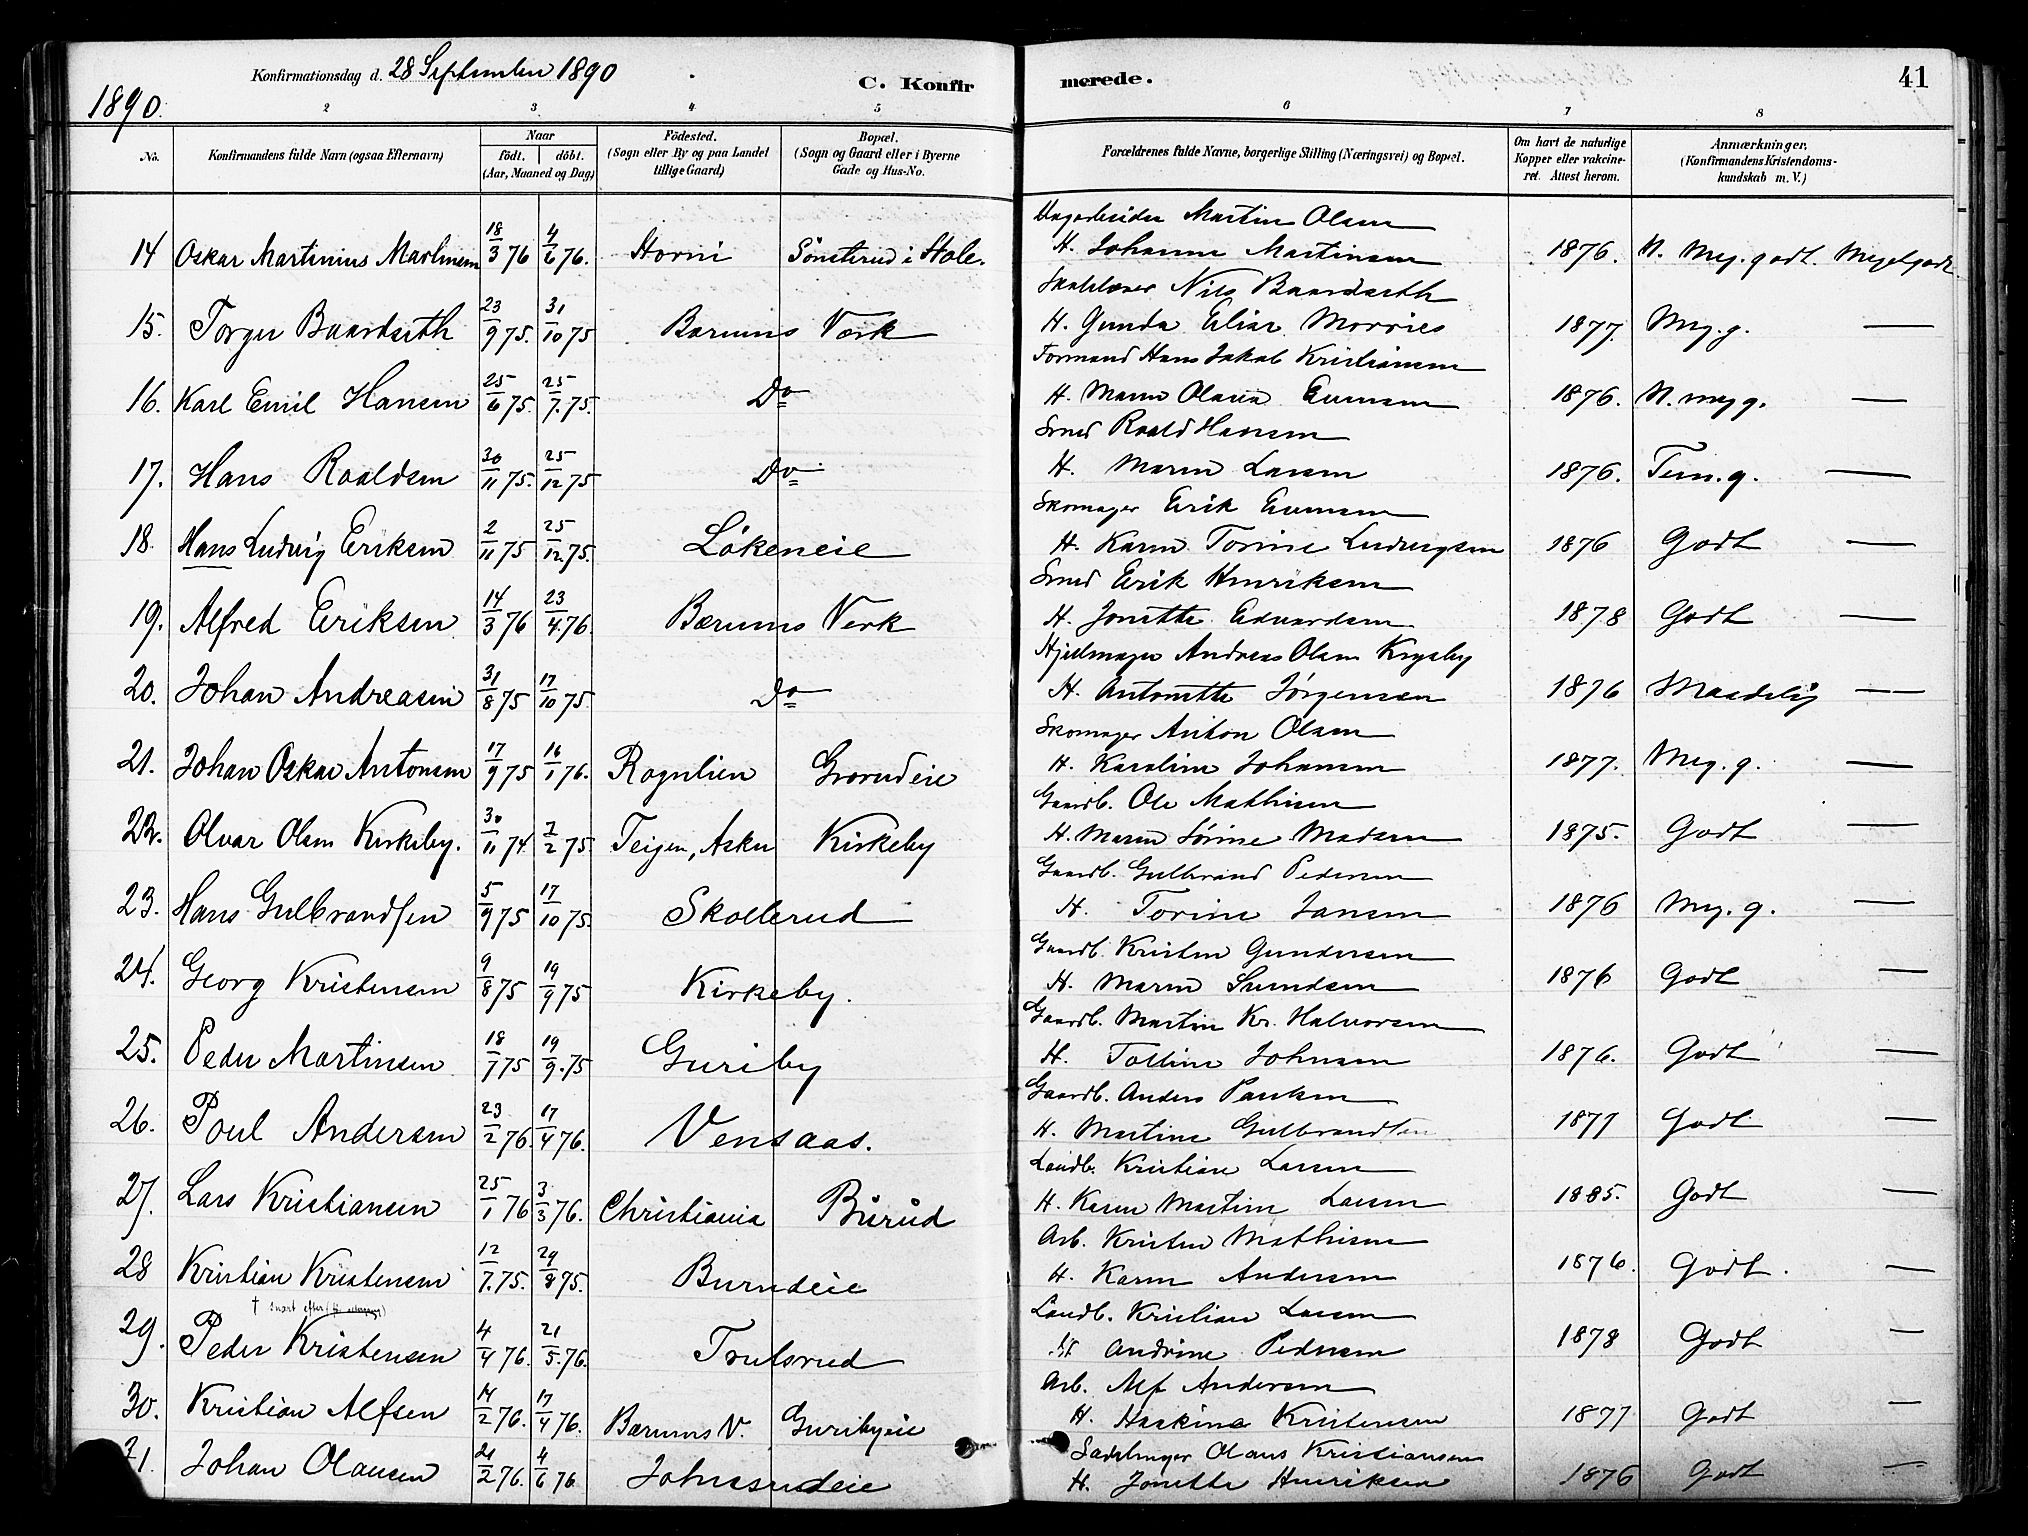 Konfirmationsdag d. 28 September 1890
C. Konfir
merede.
41
1890.
2 3 4 5 6 7 8
No. Konfirmandens fulde Navn (ogsaa Efternavn) Naar født. døbt. (Aar, Maaned og Dag) Födested. (Sogn eller By og paa Landet tillige Gaard) Bopæl. (Sogn og Gaard eller i Byerne Gade og Hus-No. Forældrenes fulde Navne, borgerlige Stilling (Næringsvei) og Bopæl. Om havt de naturlige Kopper eller vakcineret. Attest herom. Anmærkninger. (Konfirmandens Kristendomskundskab m. V.)
Dagarbeider Martin Olsen
14 Oskar Martinius Martinsen 18/3 76 4/6 76. Horni Sönsterud i Hole. H. Johanne Martinsen 1876. N. Meg. godt. Meget godt
Skolelærer Nils Baardseth
15. Torger Baardseth 23/9 75. 31/10 75 Bærums Værk H. Gunda Elise 1877. Meg. g. —
Formand Hans Jakob Kristiansen
16. Karl Emil Hansen 25/6 75. 25/7. 75. Do H. Maren Olava Evensen 1876. N. meg g. —
Smed Roald Hansen
17. Hans Roaldsen 30/11 75. 25/12 75 Do H. Maren Larsen 1876. Tem. g. —
Skomager Erik Evensen
18. Hans Ludvig Eriksen 2/11 75 25/12. 75. Lökeneie H. Karen Torine Ludvigsen 1876 Godt —
Smed Erik Henriksen
19. Alfred Eriksen 14/3 76 23/4. 76. Bærums Verk H. Jonette Edvardsen 1878 Godt —
Hjulmager Andreas Olsen Krysby
20. Johan Andreasen 31/8 75 17/10 75. Do H. Antonette Jörgensen 1876 Maadelig —
Skomager Anton Olsen
21. Johan Oskar Antonsen 17/9 75 16/1 76. Rognlien Grorudeie H. Karoline Johansen 1877. Meg. g. —
Gaardb. Ole Mathisen
22. Olvar Olsen Kirkeby. 30/11 74 7/2 75 Teigen, Asker Kirkeby H. Maren Sörine Madsen 1875. Godt —
Gaardb. Gulbrand Pedersen
23. Hans Gulbrandsen 5/9 75 17/10 75. Skollerud H. Torine Jansen 1876 Meg. g. —
Gaardb. Kristen Gundersen
24. Georg Kristensen 9/8 75 19/9 75 Kirkeby. H. Maren 1876 Godt —
Gaardb. Martin Kr. Halvorsen
25. Peder Martinsen 18/7 75 19/9. 75 Guriby H. Tolline Johnsen 1876. Godt —
Gaardb. Anders Paulsen
26. Poul Andersen 23/2 76. 17/4 76. Vensaas. H. Martine Gulbrandsen 1877 Godt —
Landb. Kristian Larsen
27. Lars Kristiansen 25/1 76 3/3 76. Christiania Bürüd H. Karen Martine Larsen 1885. Godt —
Arb. Kristen Mathisen
28 Kristian Kristensen 12/7. 75. 29/8 75. Burudeie H. Karen Andersen 1876. Godt. —
† snart efter
Landb. Kristian Larsen
29. Peder Kristensen 4/4 76. 21/5. 76. Trulsrud H. Andrine Pedersen 1878 Godt —
Arb. Alf Andersen
30. Kristian Alfsen 14/2 76. 17/4 76. Bærums V. Guribyeie H. Haakine Kristensen 1877 Godt —
Sadelmager Olaus Kristiansen
31. Johan Olausen 21/2 76. 4/6 76. Johnsrudeie H. Jonette Henriksen 1876 Godt —